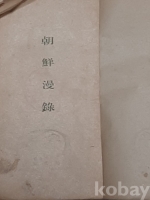 朝鮮漫錄
kobay